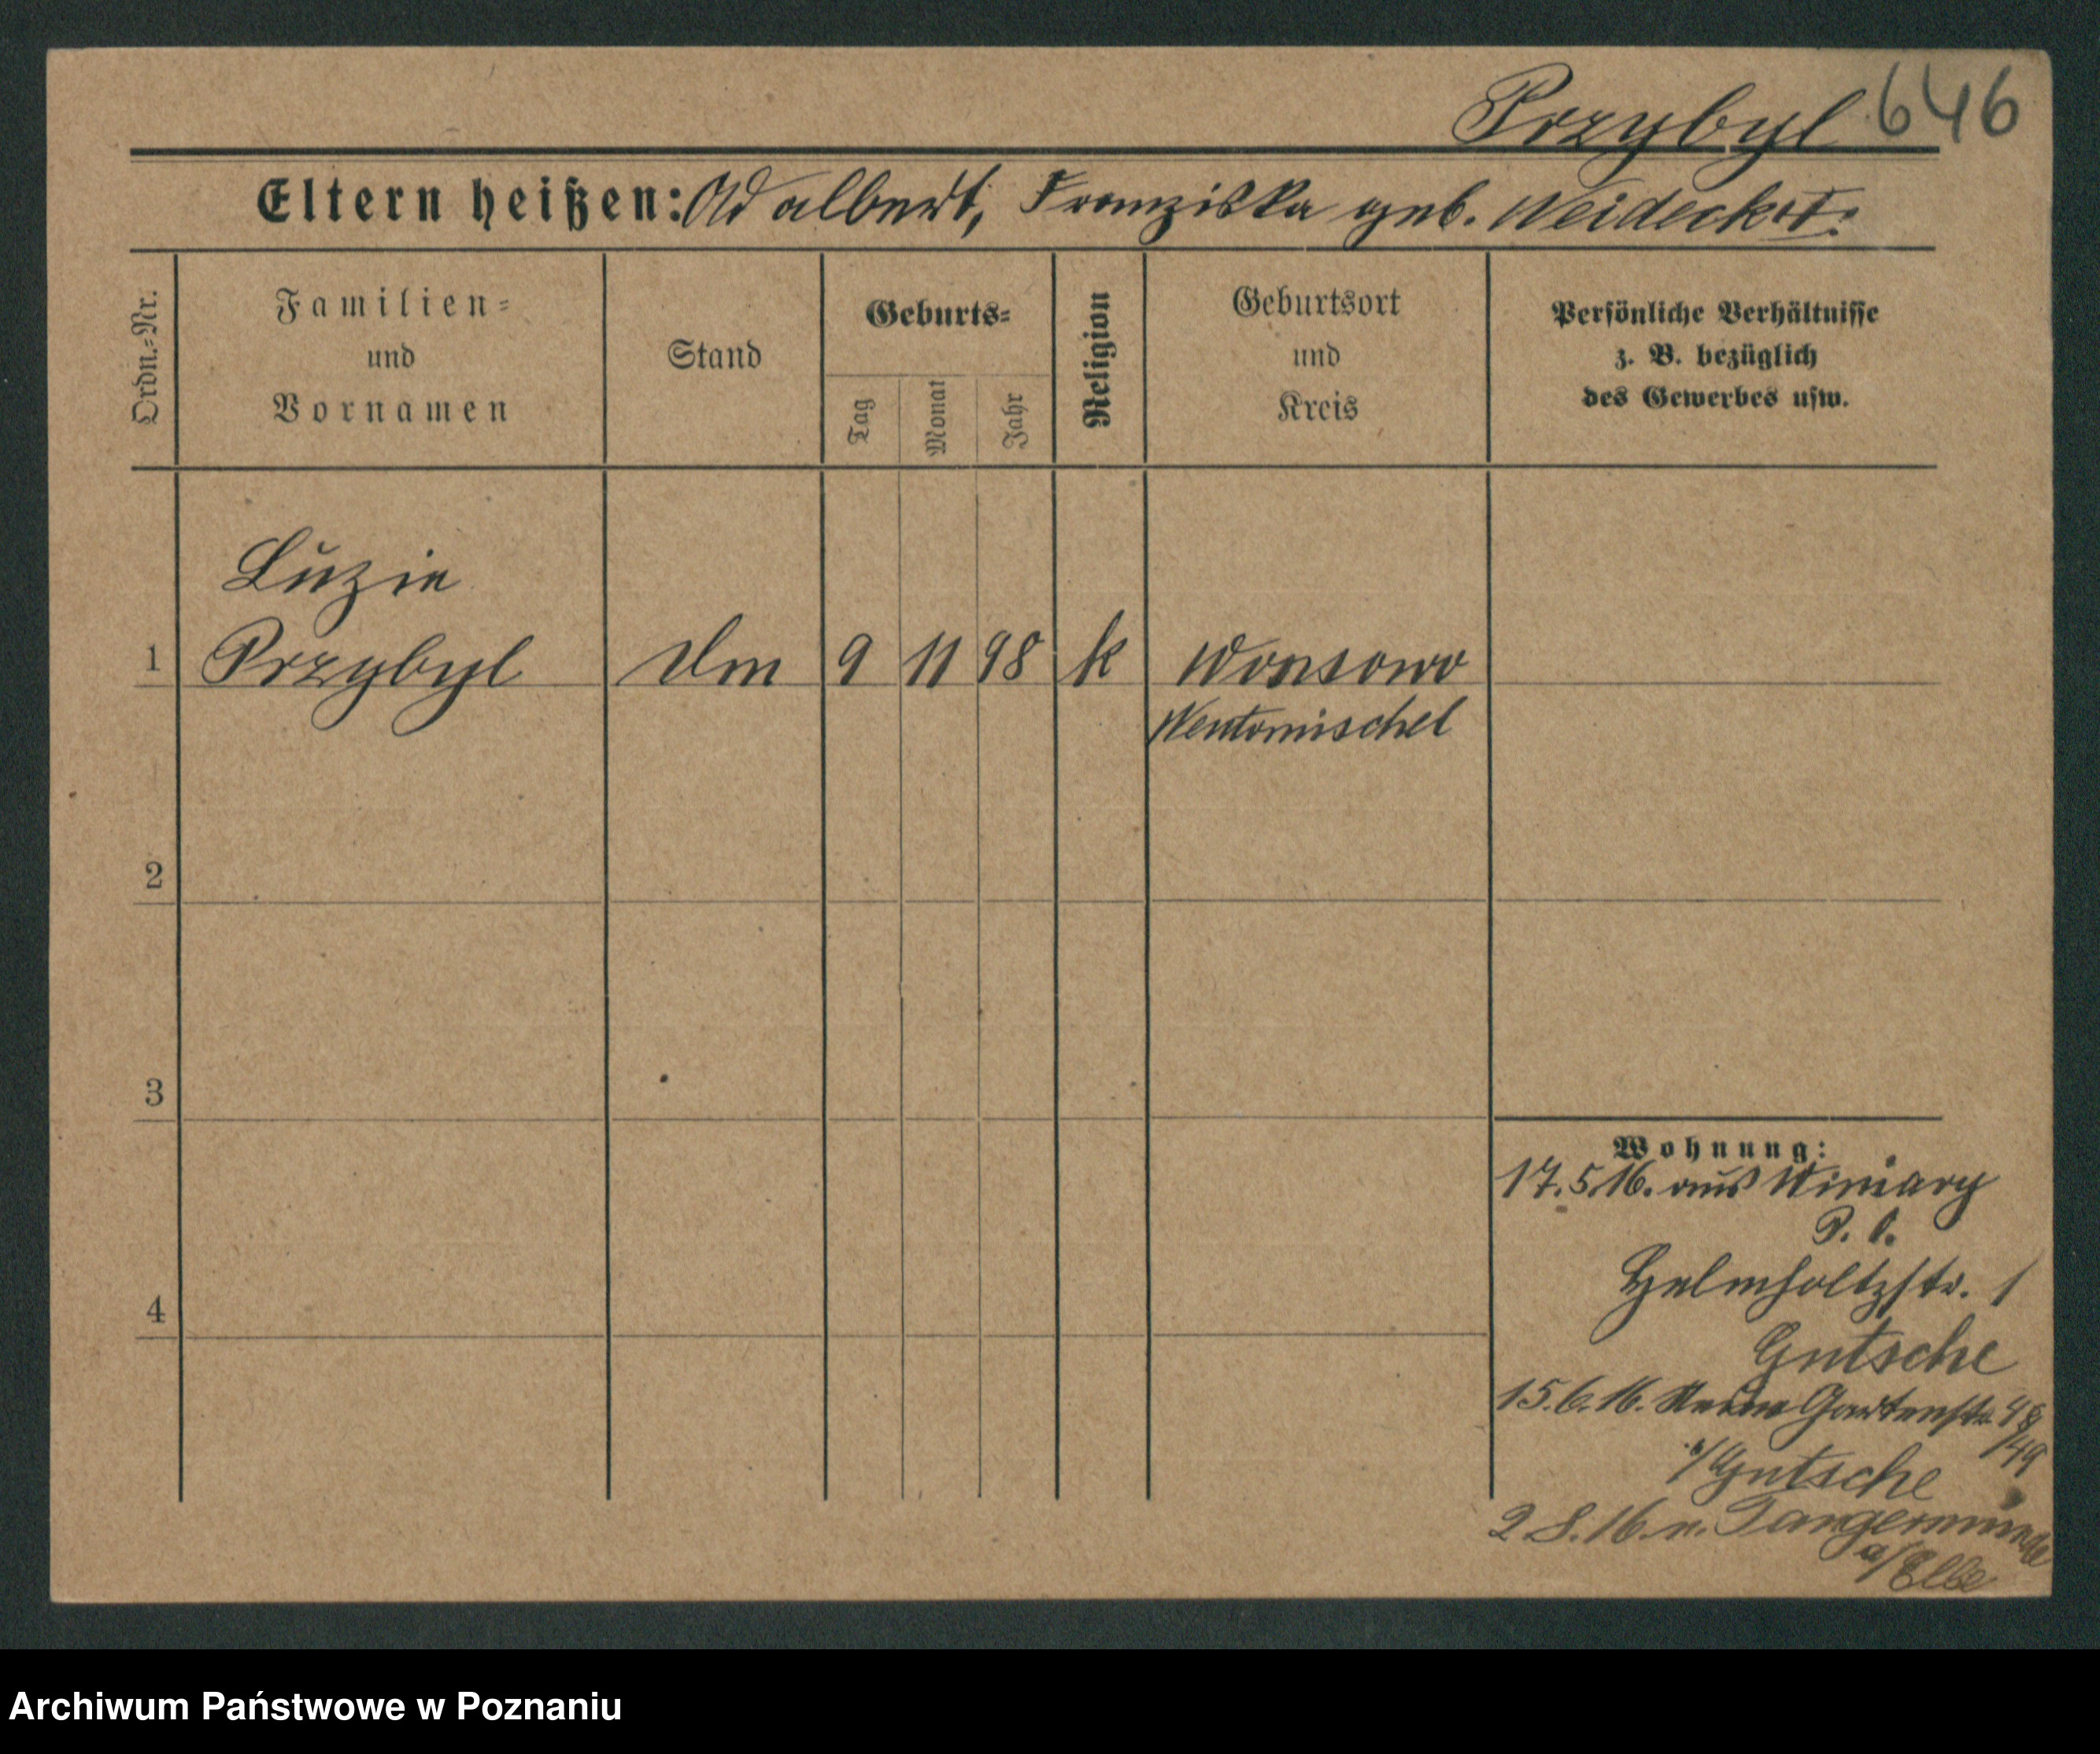 Przybyl 646
Eltern heißen: Adalbert, Franziska geb. Weideckt.
Ordn.-Nr.
Familien-
und
Vornamen
Stand
Geburts-
Tag
Monat
Jahr
Religion
Geburtsort
und
Kreis
Persönliche Verhältnisse
z. B. bezüglich
des Gewerbes usw.
Luzie
1 Przybyl Dm 9 11 98 k Wonsowo
Neutomischel
2
3
4
Wohnung:
17.5.16. aus Winiary
Helmholtzstr. 1
Gutsche
15.6.16. Gartenstr. 48
/49
b/Gutsche
2.8.16 n. Tangermünde
a/Elbe
Archiwum Państwowe w Poznaniu